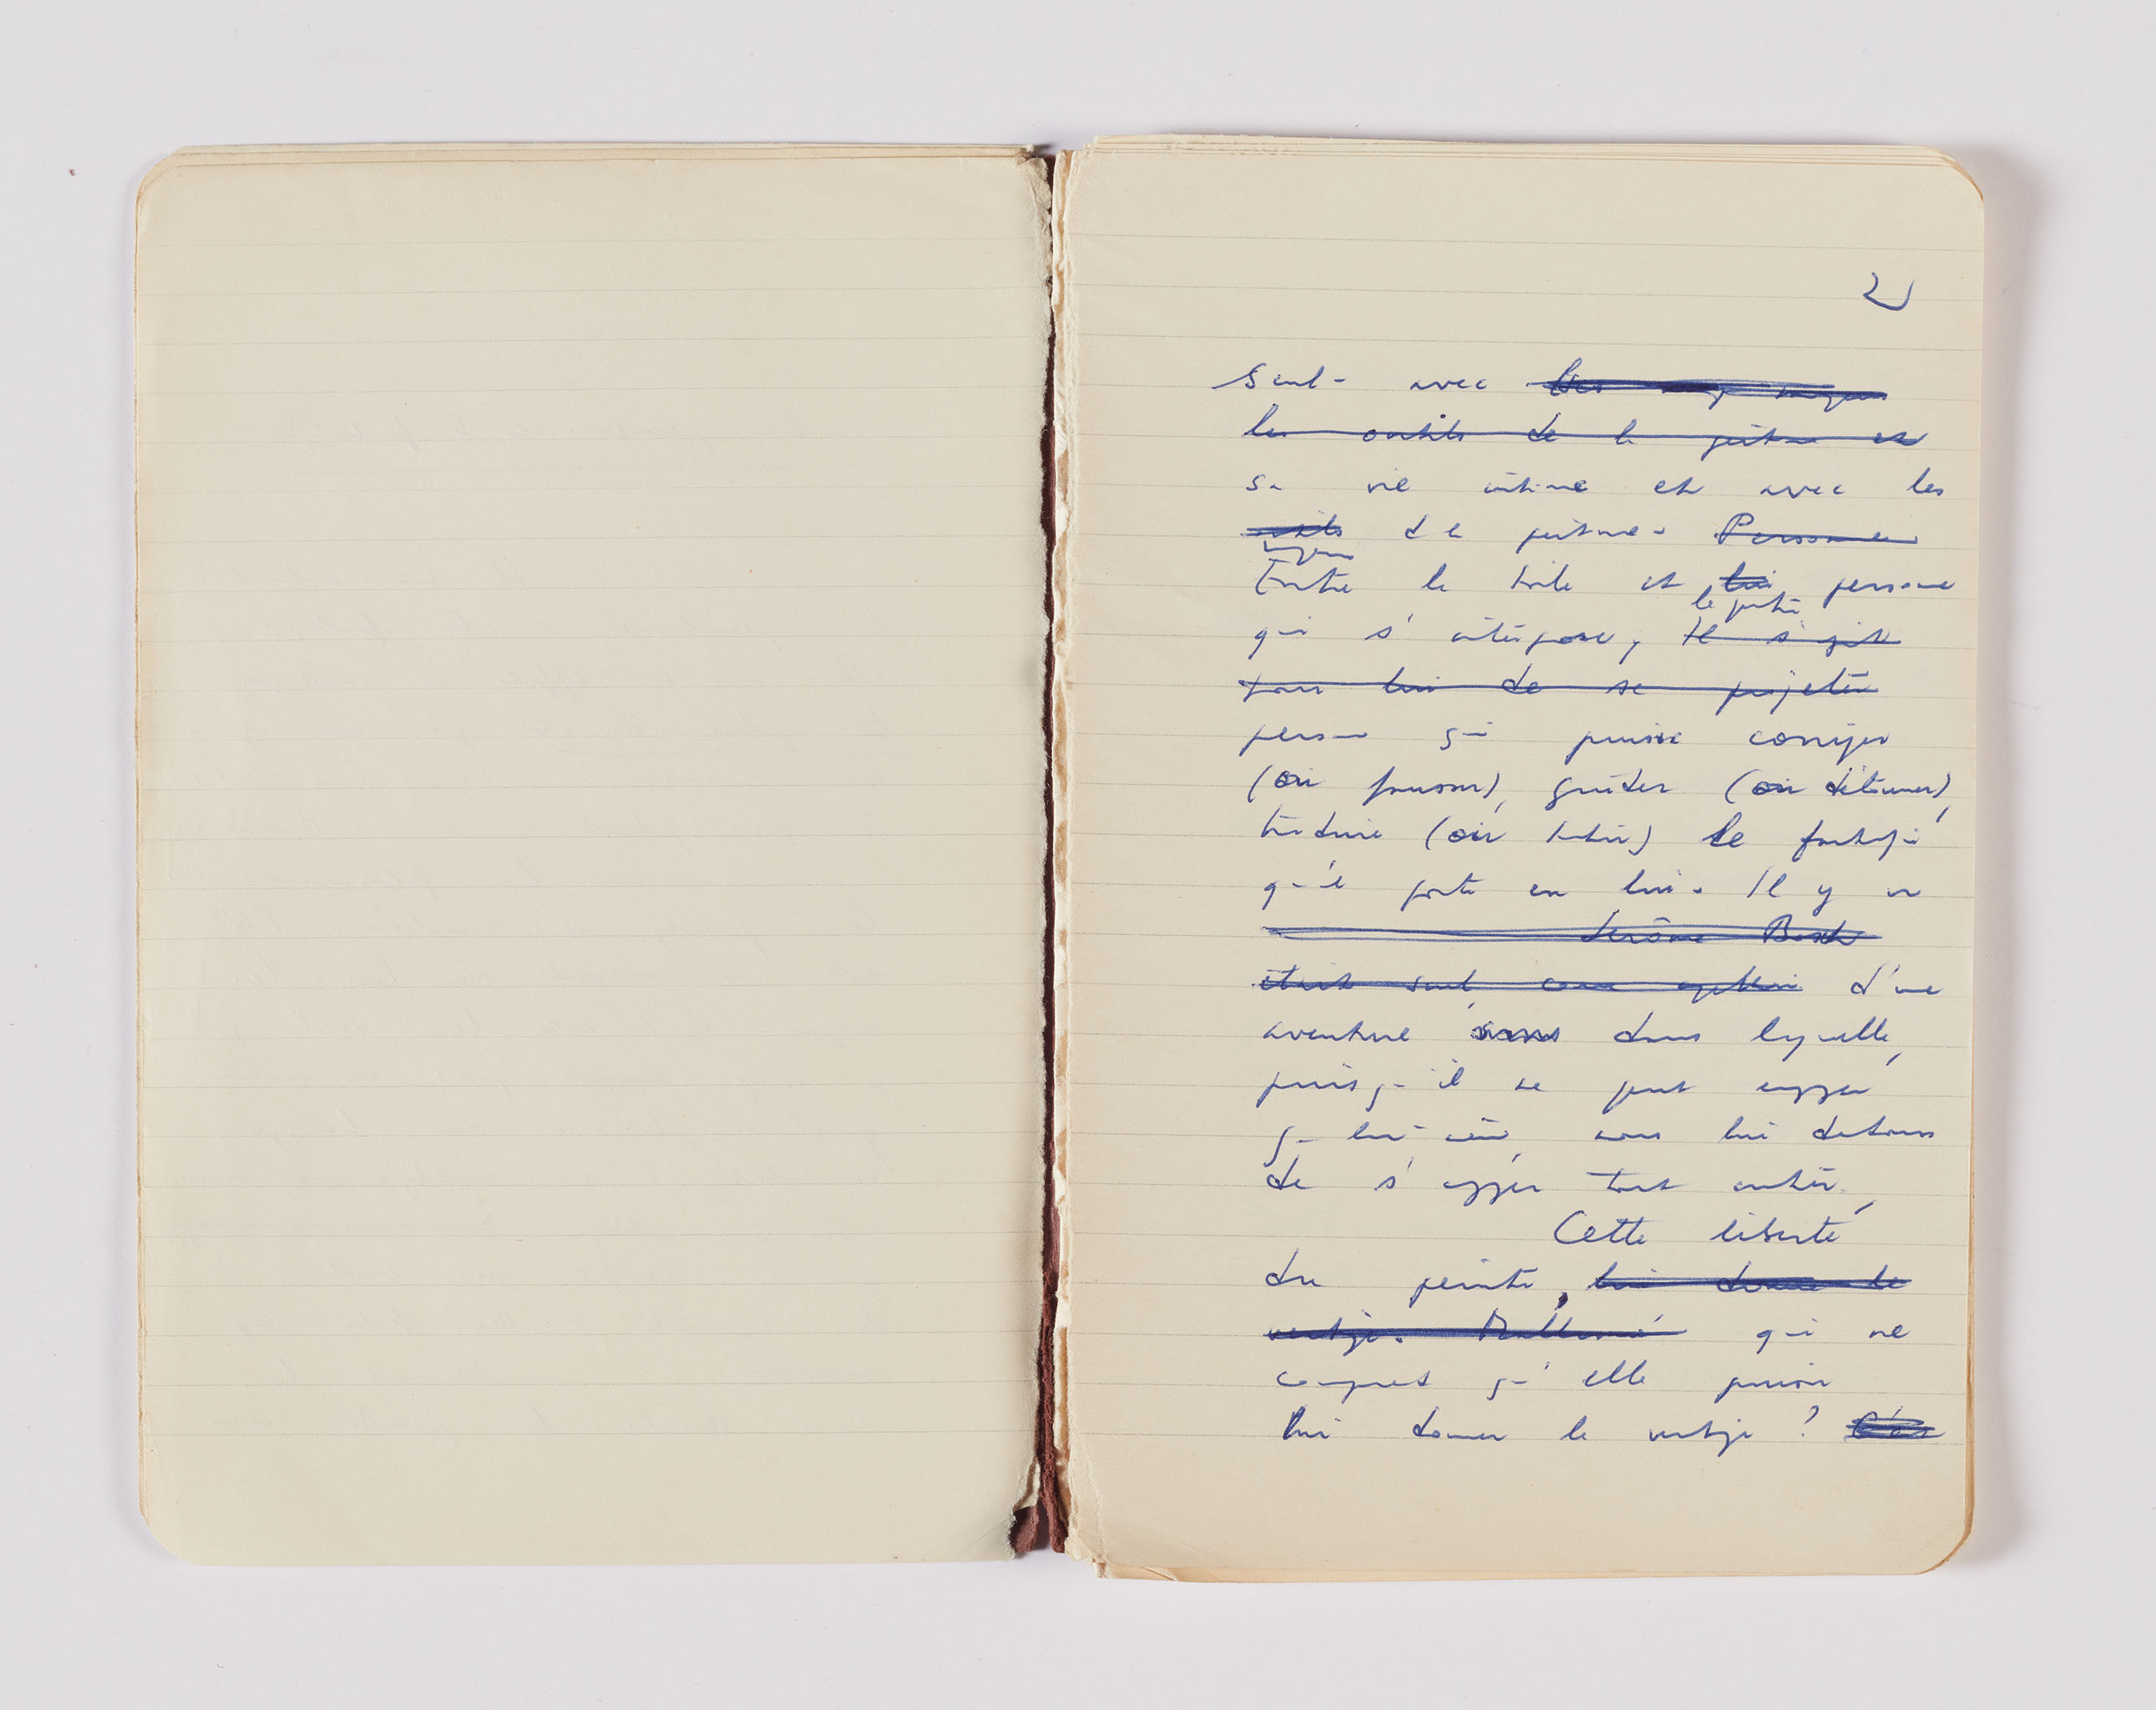 2
seul - avec les moyens
les outils de la peinture et
sa vie intime et avec les
outils de peinture. Personne
moyens
Entre la toile et lui personne
le peintre
qui s'interpose, Il s'agit
pour lui de se projeter
personne qui puisse corriger
(ou fausser), guider (ou détourner),
traduire (ou trahir) le
qu'il porte en lui. Il y a
Jérôme Bosch
était seul, comme d'une
aventure sans dans laquelle,
puisqu'il ne peut engager
que lui-même, nous lui devons
de s'engager tout entier,
Cette liberté
du peintre, lui donne le
vertige. Mallarmé qui ne
comprend qu'elle puisse
lui donner le vertige ? C'est